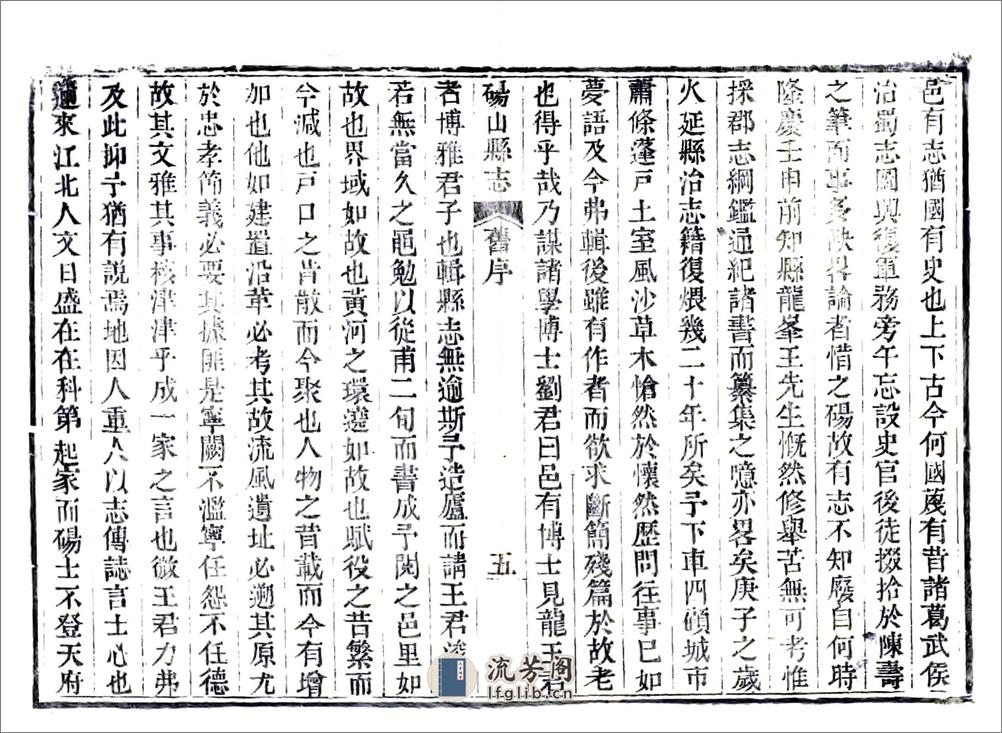 邑有志猶國有史也上下古今何國蔑有昔諸葛武侯
治蜀志圖興復軍務旁午忘設史官後徒掇拾於陳壽
之筆而事多缺畧論者惜之碭故有志不知廢自何時
隆慶壬申前知縣龍峯王先生慨然修舉苦無可考惟
採郡志綱鑑通紀諸書而纂集之噫亦畧矣庚子之歲
火延縣治志籍復煨幾二十年所矣予下車四顧城市
蕭條蓬戸土室風沙草木愴然於懷然歷問往事已如
夢語及今弗輯後雖有作者而欲求斷簡殘篇於故老
也得乎哉乃謀諸學博士劉君曰邑有博士見龍王君
碭山縣志 舊序 五
者博雅君子也輯縣志無逾斯予造廬而請王君
若無當久之黽勉以從甫二旬而書成予閱之邑里如
故也界域如故也黃河之環遶如故也賦役之昔繁而
今減也戸口之昔散而今聚也人物之昔載而今有增
加也他如建置沿革必考其故流風遺址必遡其原尤
於忠孝節義必要其據匪是寧闕不濫寧任怨不任德
故其文雅其事核津津乎成一家之言也微王君力弗
及此抑予猶有說焉地因人重人以志傳誌言士心也
邇來江北人文日盛在在科第起家而碭士不登天府
流芳阁
lfglib.cn